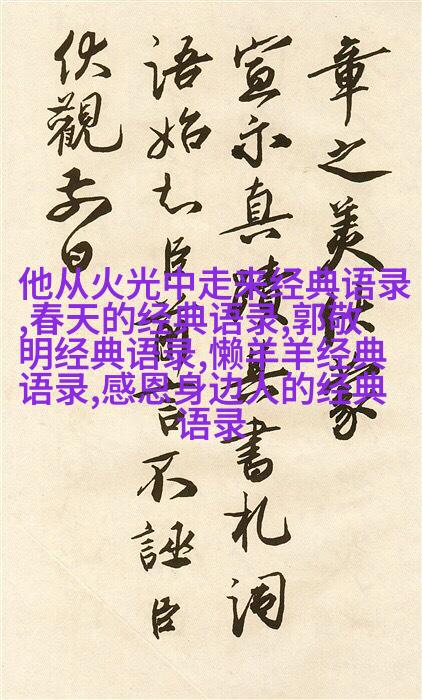 章之美伏蒙
宣示真蹟其書札詞
語始知臣前言不誣臣
伏觀前日
他从火光中走来经典语录
,春天的经典语录,郭敬
明经典语录,懒羊羊经典
语录,感恩身边人的经典
语录